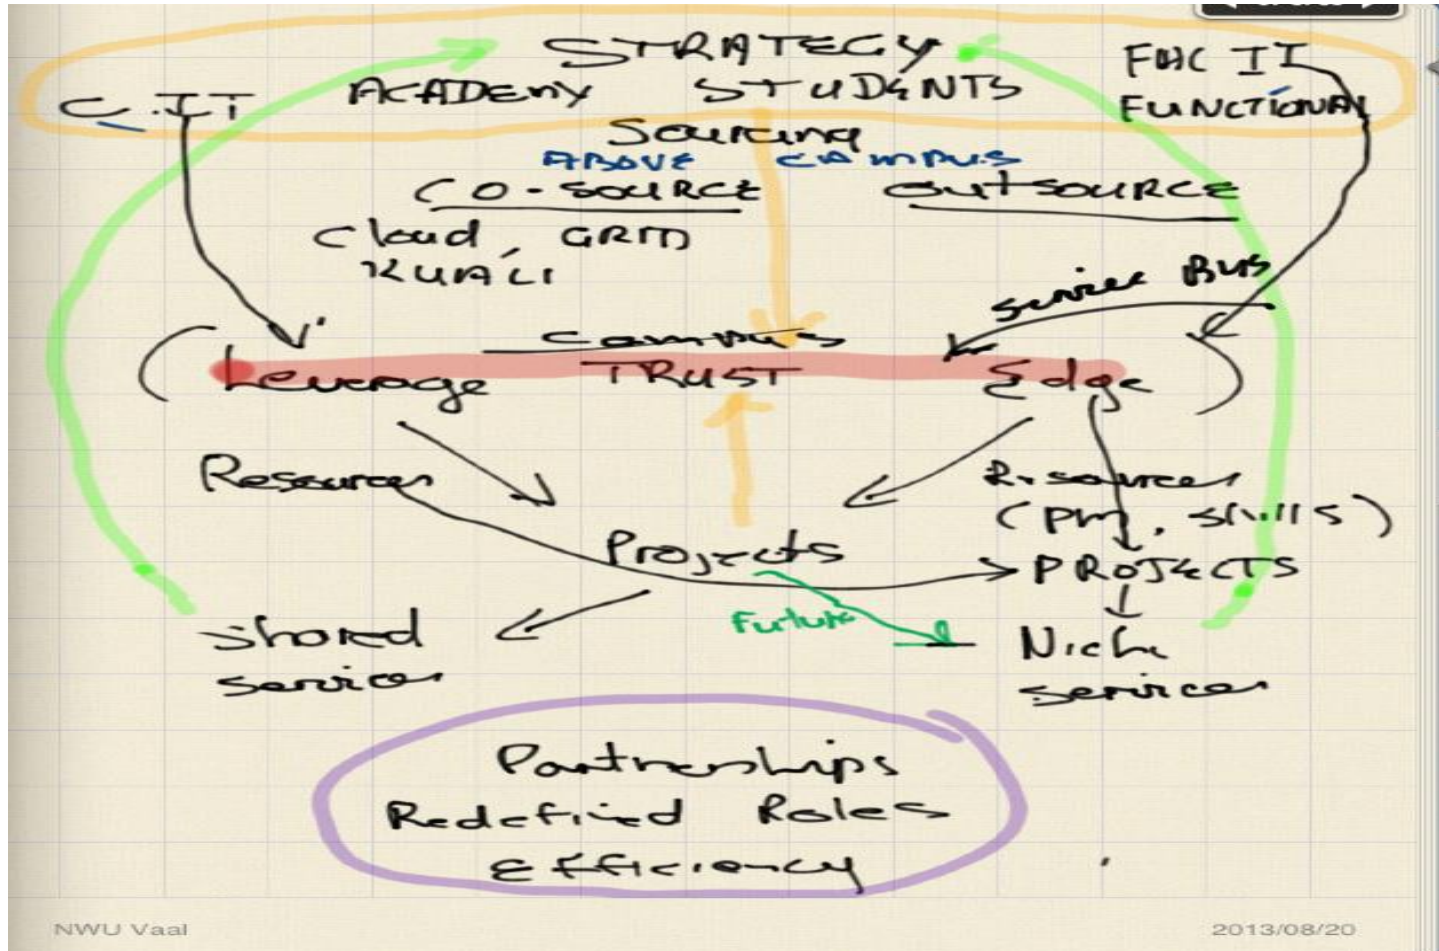 STRATEGY
C.IT ACADEMY STUDENTS FAC IT
FUNCTIONAL
Sourcing
ABOVE CAMPUS
CO-SOURCE OUTSOURCE
Cloud, GRID
KUALI
Service Bus
Campus
Leverage TRUST Edge
Resources Resources
(PM, skills)
Projects PROJECTS
Future
Shared Niche
services services
Partnerships
Redefined Roles
Efficiency
NWU Vaal 2013/08/20